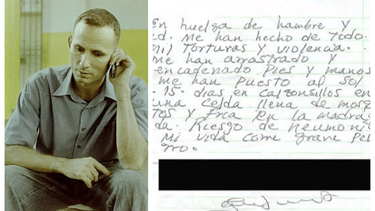 En huelga de hambre y
ed. Me han hecho de todo.
Torturas y violencia.
me han arrastrado y
encadenado pies y manos
me han puesto al sol
15 dias en calzoncillos en
una celda llena de mos
tos y fria en la madru
da. Riesgo de neumoni
Mi vida corre grave pe
gro.